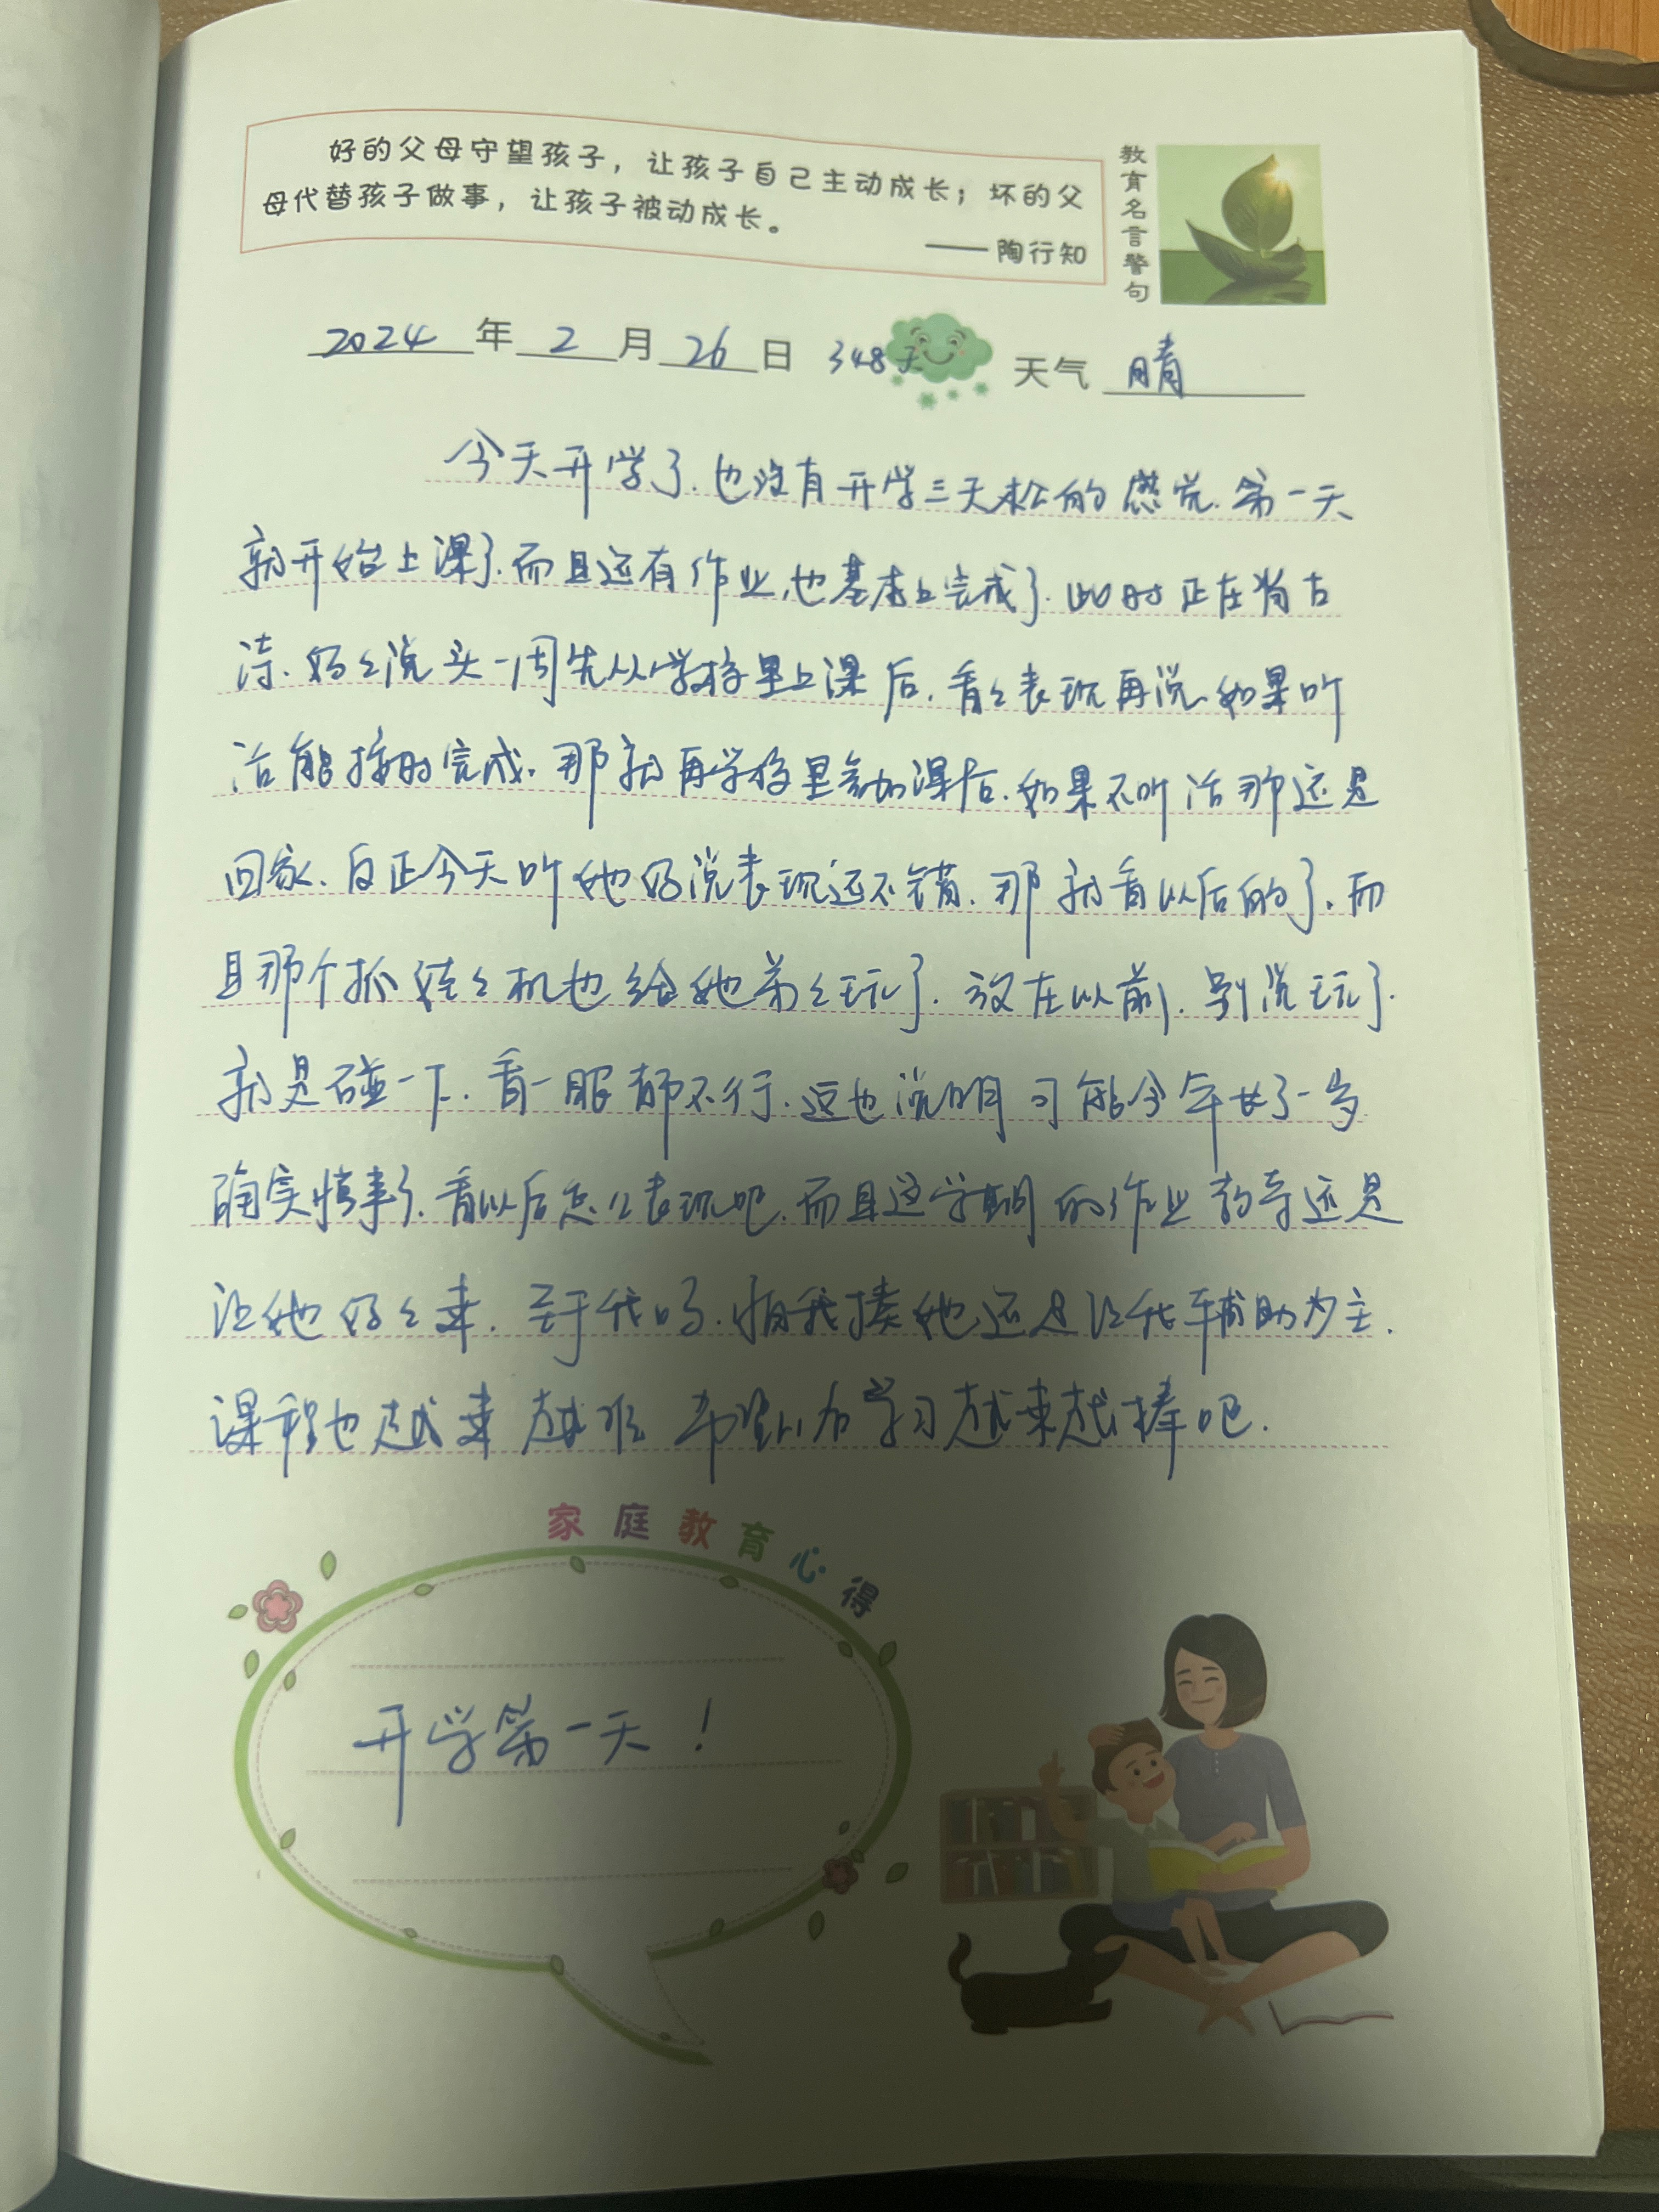 好的父母守望孩子，让孩子自己主动成长；坏的父
母代替孩子做事，让孩子被动成长。
——陶行知
教育名言警句
2024年2月26日 348天 天气 晴
今天开学了.也没有开学三天松的感觉.第一天
就开始上课了.而且还有作业,也基本上完成了.此时正在背古
诗.妈妈说头一周先从学校里上课后.看看表现再说.如果听
话能按时完成.那就再学校里参加课后.如果不听话那还是
回家.反正今天听她妈说表现还不错.那就看以后的了.而
且那个抓娃娃机也给她弟弟玩了.放在以前.别说玩了.
就是碰一下.看一眼都不行.这也说明可能今年长了一岁
确实懂事了.看以后怎么表现吧.而且这学期的作业教导还是
让她妈妈来.至于我吗.怕我揍她还是让我辅助为主.
课程也越来越难 希望以后学习越来越棒吧.
家庭教育心得
开学第一天！